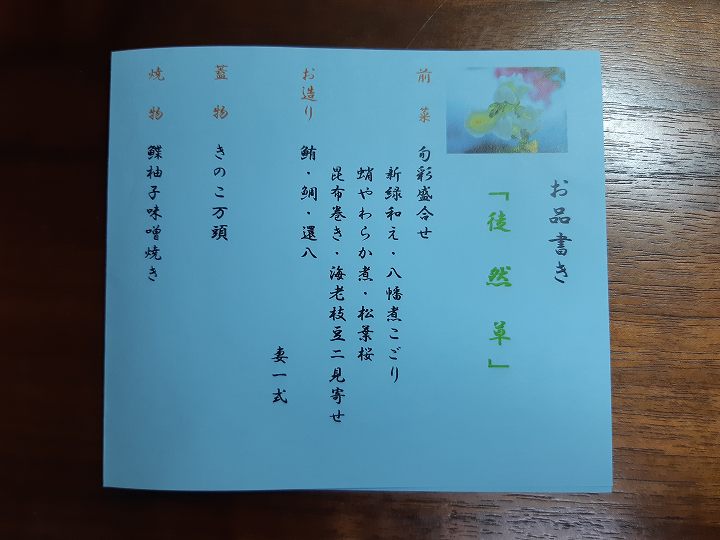 お品書き
「徒然草」
前菜 旬彩盛合せ
新緑和え・八幡煮こごり
蛸やわらか煮・松葉桜
昆布巻き・海老枝豆二見寄せ
お造り 鮪・鯛・還八
妻一式
蓋物 きのこ万頭
焼物 鰈柚子味噌焼き